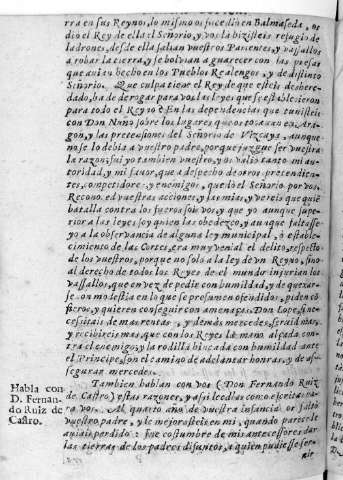 rra en sus Reynos, lo mismo os sucediò en Balmaseda, os
diò el Rey de ella el Señorio, y vos la hizisteis refugio de
ladrones, desde ella salian vuestros Parientes, y vassallos
a robar la tierra, y se bolvian a guarecer con las presas
que avian hecho en los Pueblos Realengos, y de distinto
Señorio. Què culpa tiene el Rey de que esteis deshere-
dado, ha de derogar para vos las leyes que se establecieron
para todo el Reyno? En las dependencias que tuvisteis
con Don Nuño sobre los lugares que os tocavan en Ara-
gon, y las pretensiones del Señorio de Vizcaya, aunque
no se lo debia a vuestro padre, porque juzguè ser vuestra
la razon, fui yo tambien vuestro, y os valiò tanto mi au-
toridad, y mi favor, que a despecho de otros pretendien-
tes, competidores, y enemigos, quedò el Señorio por vos.
Reconoced vuestras acciones, y las mias, y vereis que quiē
batalla contra los fueros sois vos, y que yo aunque supe-
rior a las leyes soy quien las obedezco, y aunque faltasse
yo a la observancia de alguna ley municipal, ò estable-
cimiento de las Cortes, era muy venial el delito, respecto
de los vuestros, porque no solo a la ley de vn Reyno, sino
al derecho de todos los Reyes de el mundo injurian los
vassallos, que en vez de pedir con humildad, y de quexar-
se con modestia en lo que se presumen ofendidos, piden cō
fieros, y quieren conseguir con amenaças. Don Lope, si ne-
cessitais de mas rentas, y demàs mercedes, servid mas,
y recibireis mas, que con los Reyes la mano alçada con-
tra el enemigo, y la rodilla hincada con humildad ante
el Principe, son el camino de adelantar honras, y de as-
segurar mercedes.
Habla con
D. Fernan-
do Ruiz de
Castro.
Tambien hablan con vos (Don Fernando Ruiz
de Castro) estas razones, y assi leedlas como escritas pa-
ra vos. Al quarto año de vuestra infancia os faltò
vuestro padre, y le mejorasteis en mi, quando parece le
aviais perdido: Fue costumbre de mis antecessores dar
las tierras de los padres difuntos, a quien pudiesse ser-
vir